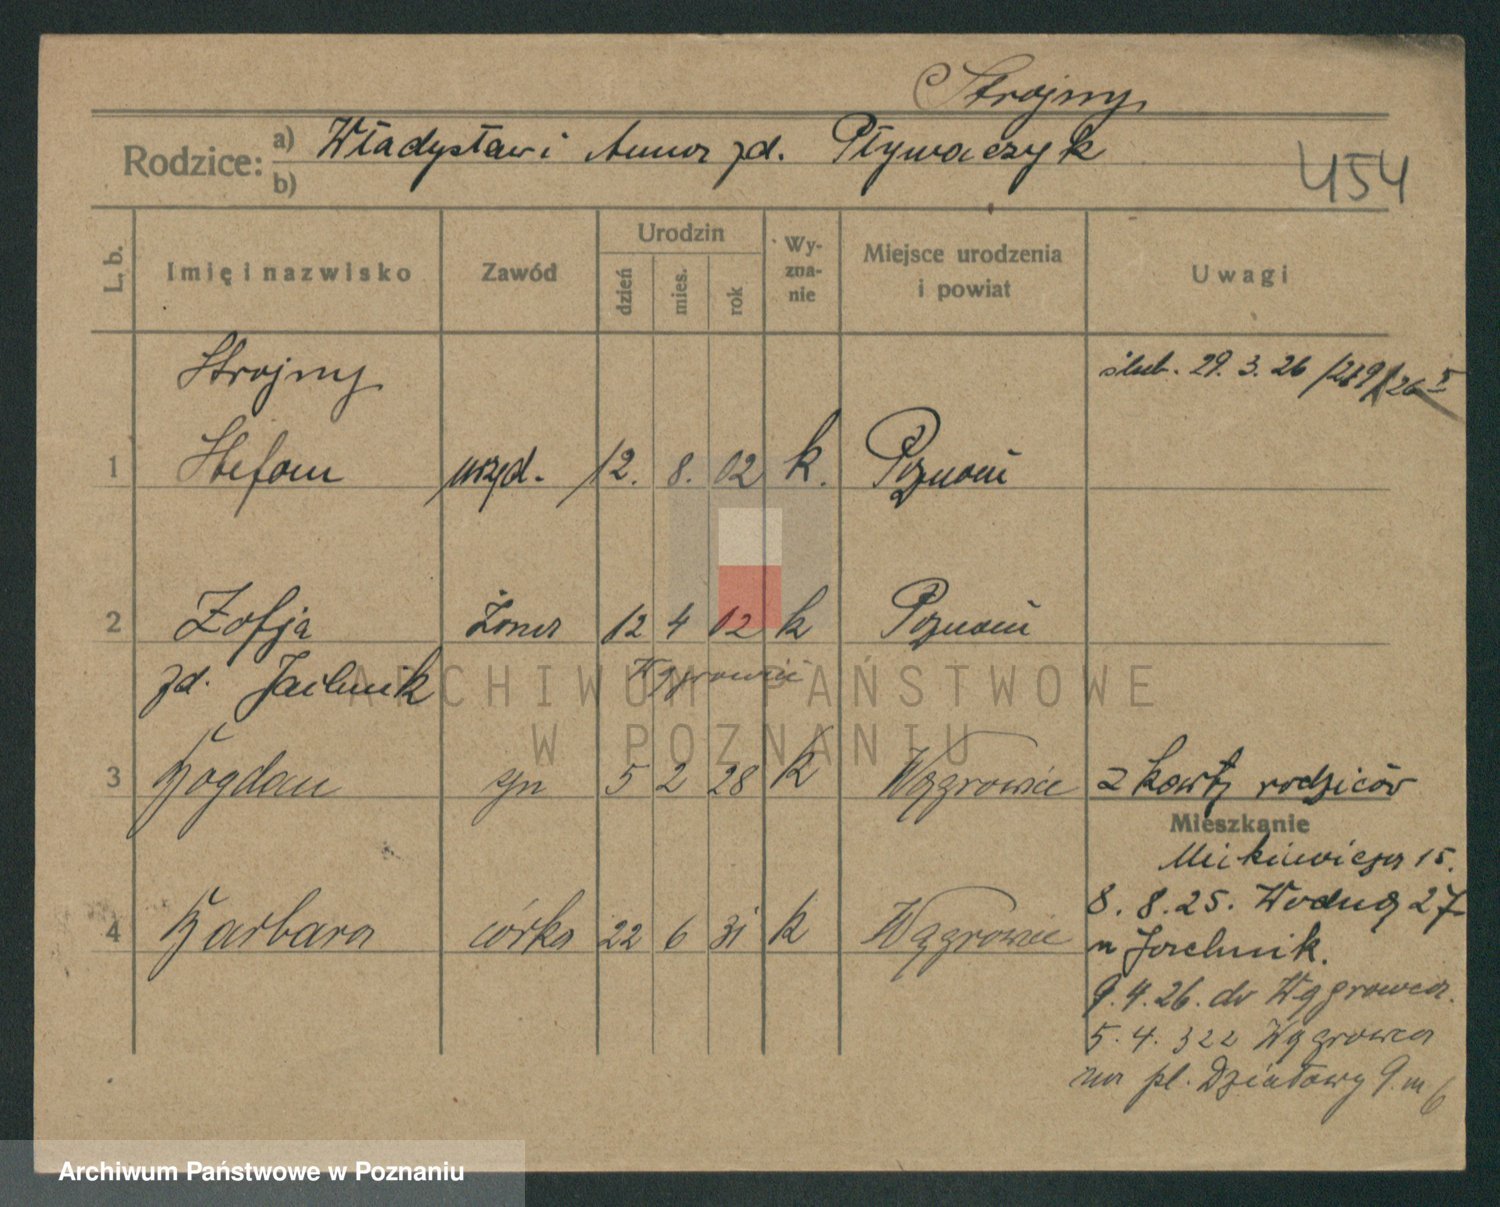 Strojny
Rodzice: a) Władysław i Anna zd. Pływaczyk
b)
454
L. b.
Imię i nazwisko
Zawód
Urodzin
dzień
mies.
rok
Wy-
zna-
nie
Miejsce urodzenia
i powiat
Uwagi
Strojny
ślub. 29. 3. 26 /289/26 I
1 Stefan urzęd. 12. 8. 02 k. Poznań
2 Zofja żona 12 4 02 k Poznań
zd. Jachnik Wągrowiec
3 Bogdan syn 5 2 28 k Wągrowiec z karty rodziców
Mieszkanie
Mickiewicza 15.
8. 8. 25. Wodna 27
4 Barbara córka 22 6 31 k Wągrowiec u Jachnik.
9. 4. 26. do Wągrowca.
5. 4. 32 z Wągrowca
na pl. Działowy 9 m 6
ARCHIWUM PAŃSTWOWE
W POZNANIU
Archiwum Państwowe w Poznaniu